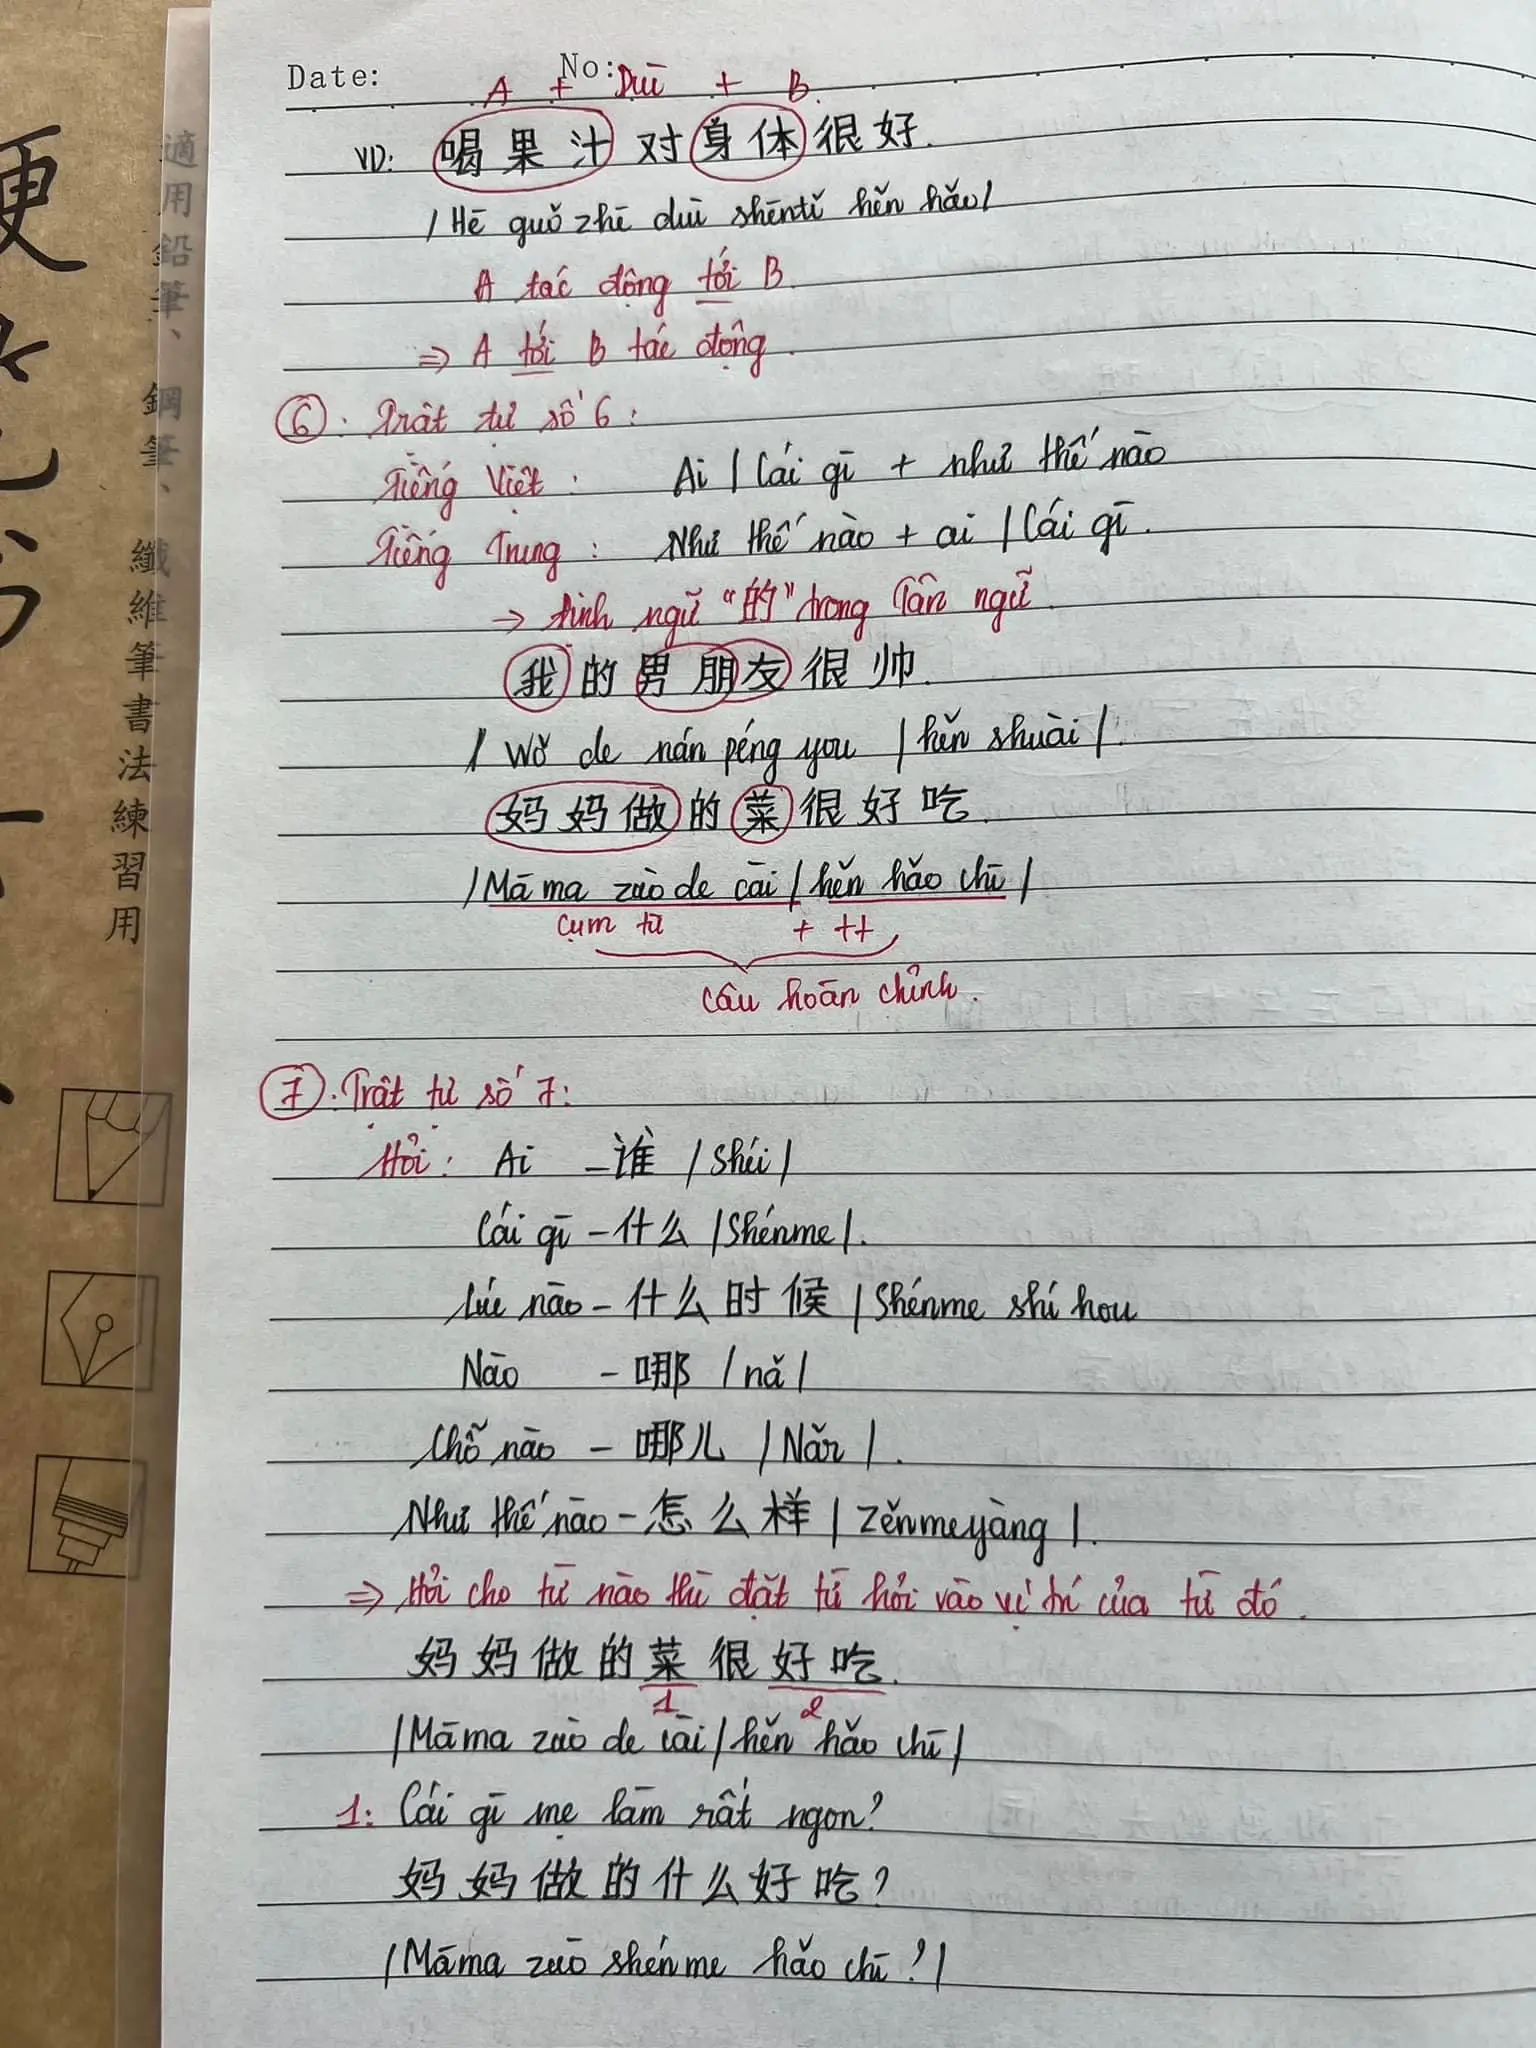 Date: No:
A + Duì + B.
VD: 喝果汁对身体很好.
/Hē guǒ zhī duì shēntǐ hěn hǎo/
A tác động tới B.
⇒ A tới B tác động.
⑥. Trật tự số 6:
Tiếng Việt: Ai / Cái gì + như thế nào
Tiếng Trung: Như thế nào + ai / Cái gì.
→ định ngữ "的" trong Tân ngữ.
我的男朋友很帅.
/ Wǒ de nán péng you / hěn shuài /.
妈妈做的菜很好吃.
/Māma zuò de cài / hěn hǎo chī /
Cụm từ + tt
câu hoàn chỉnh.
⑦. Trật tự số 7:
Hỏi: Ai – 谁 / Shéi /
Cái gì – 什么 / Shénme /.
Lúc nào – 什么时候 / Shénme shí hou
Nào – 哪 / nǎ /
Chỗ nào – 哪儿 / Nǎr /.
Như thế nào – 怎么样 / Zěnmeyàng /.
⇒ Hỏi cho từ nào thì đặt từ hỏi vào vị trí của từ đó.
妈妈做的菜很好吃.
1 2
/Māma zuò de cài / hěn hǎo chī /
1: Cái gì mẹ làm rất ngon?
妈妈做的什么好吃?
/Māma zuò shénme hǎo chī?/
硬
適用鉛筆、鋼筆、纖維筆書法練習用